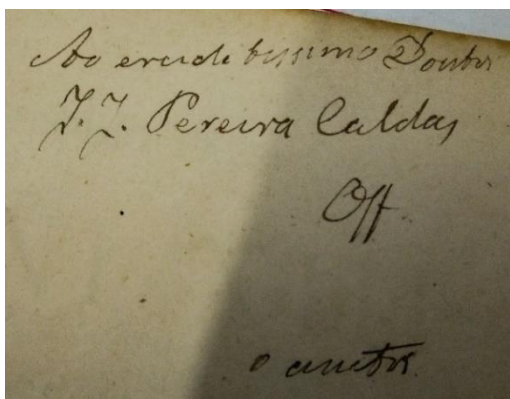 Ao eruditissimo Doutor
J. J. Pereira Caldas
Off.
o auctor.